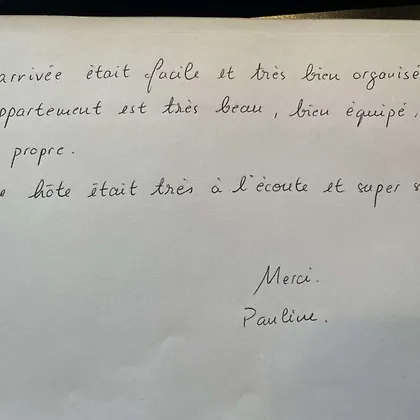 arrivée était facile et très bien organisé
ppartement est très beau, bien équipé,
propre.
e hôte était très à l'écoute et super s
Merci.
Pauline.